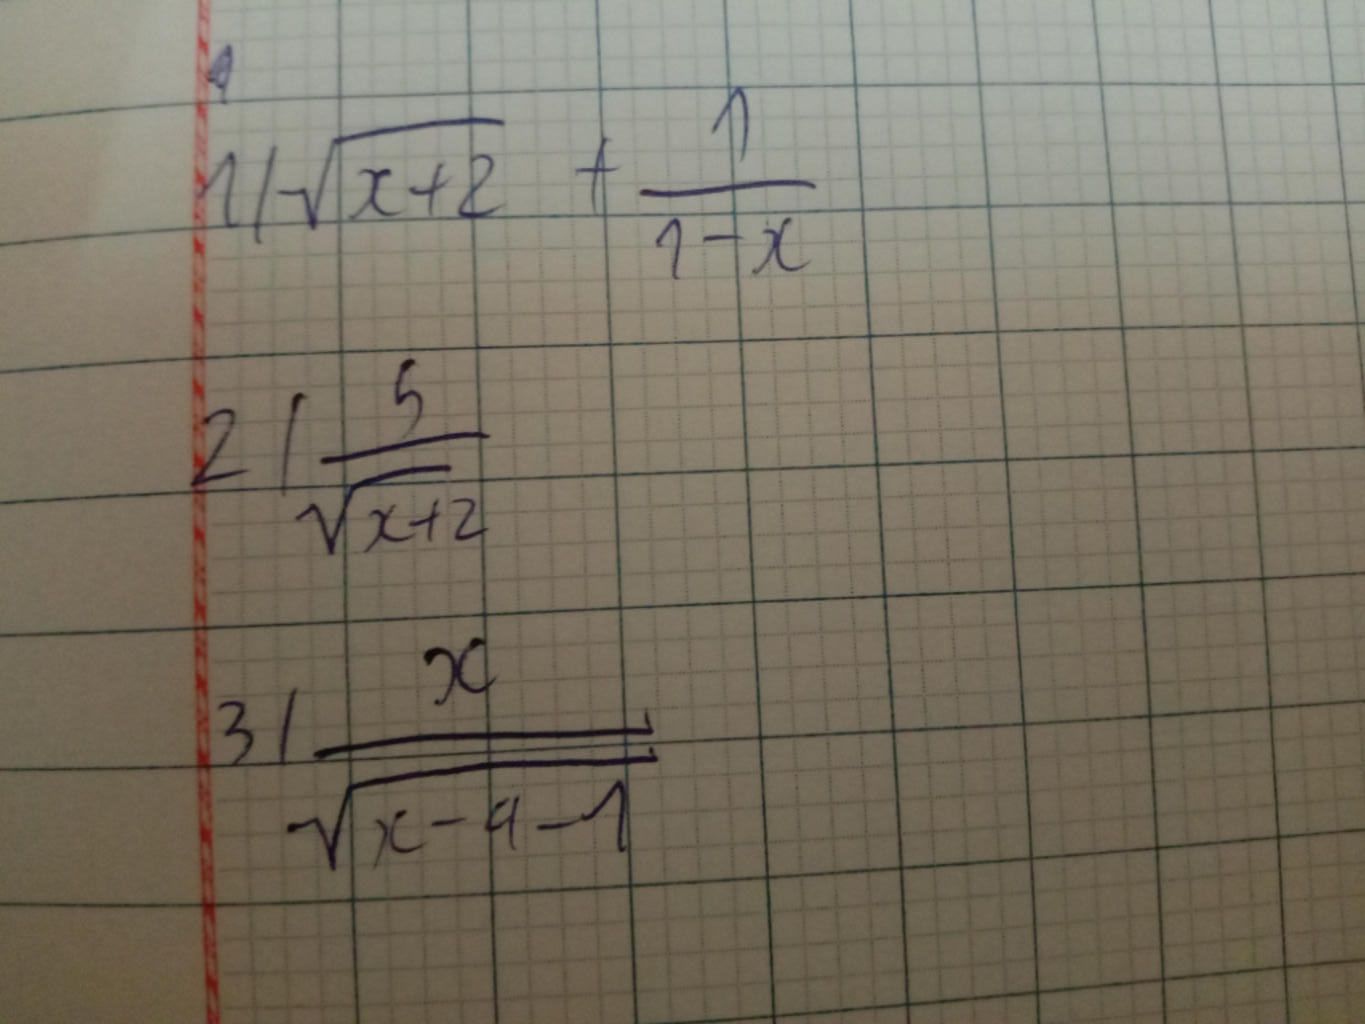 1/ √(x+2) + 1/(1-x)
2/ 5/√(x+2)
3/ x/√(x-4-1)